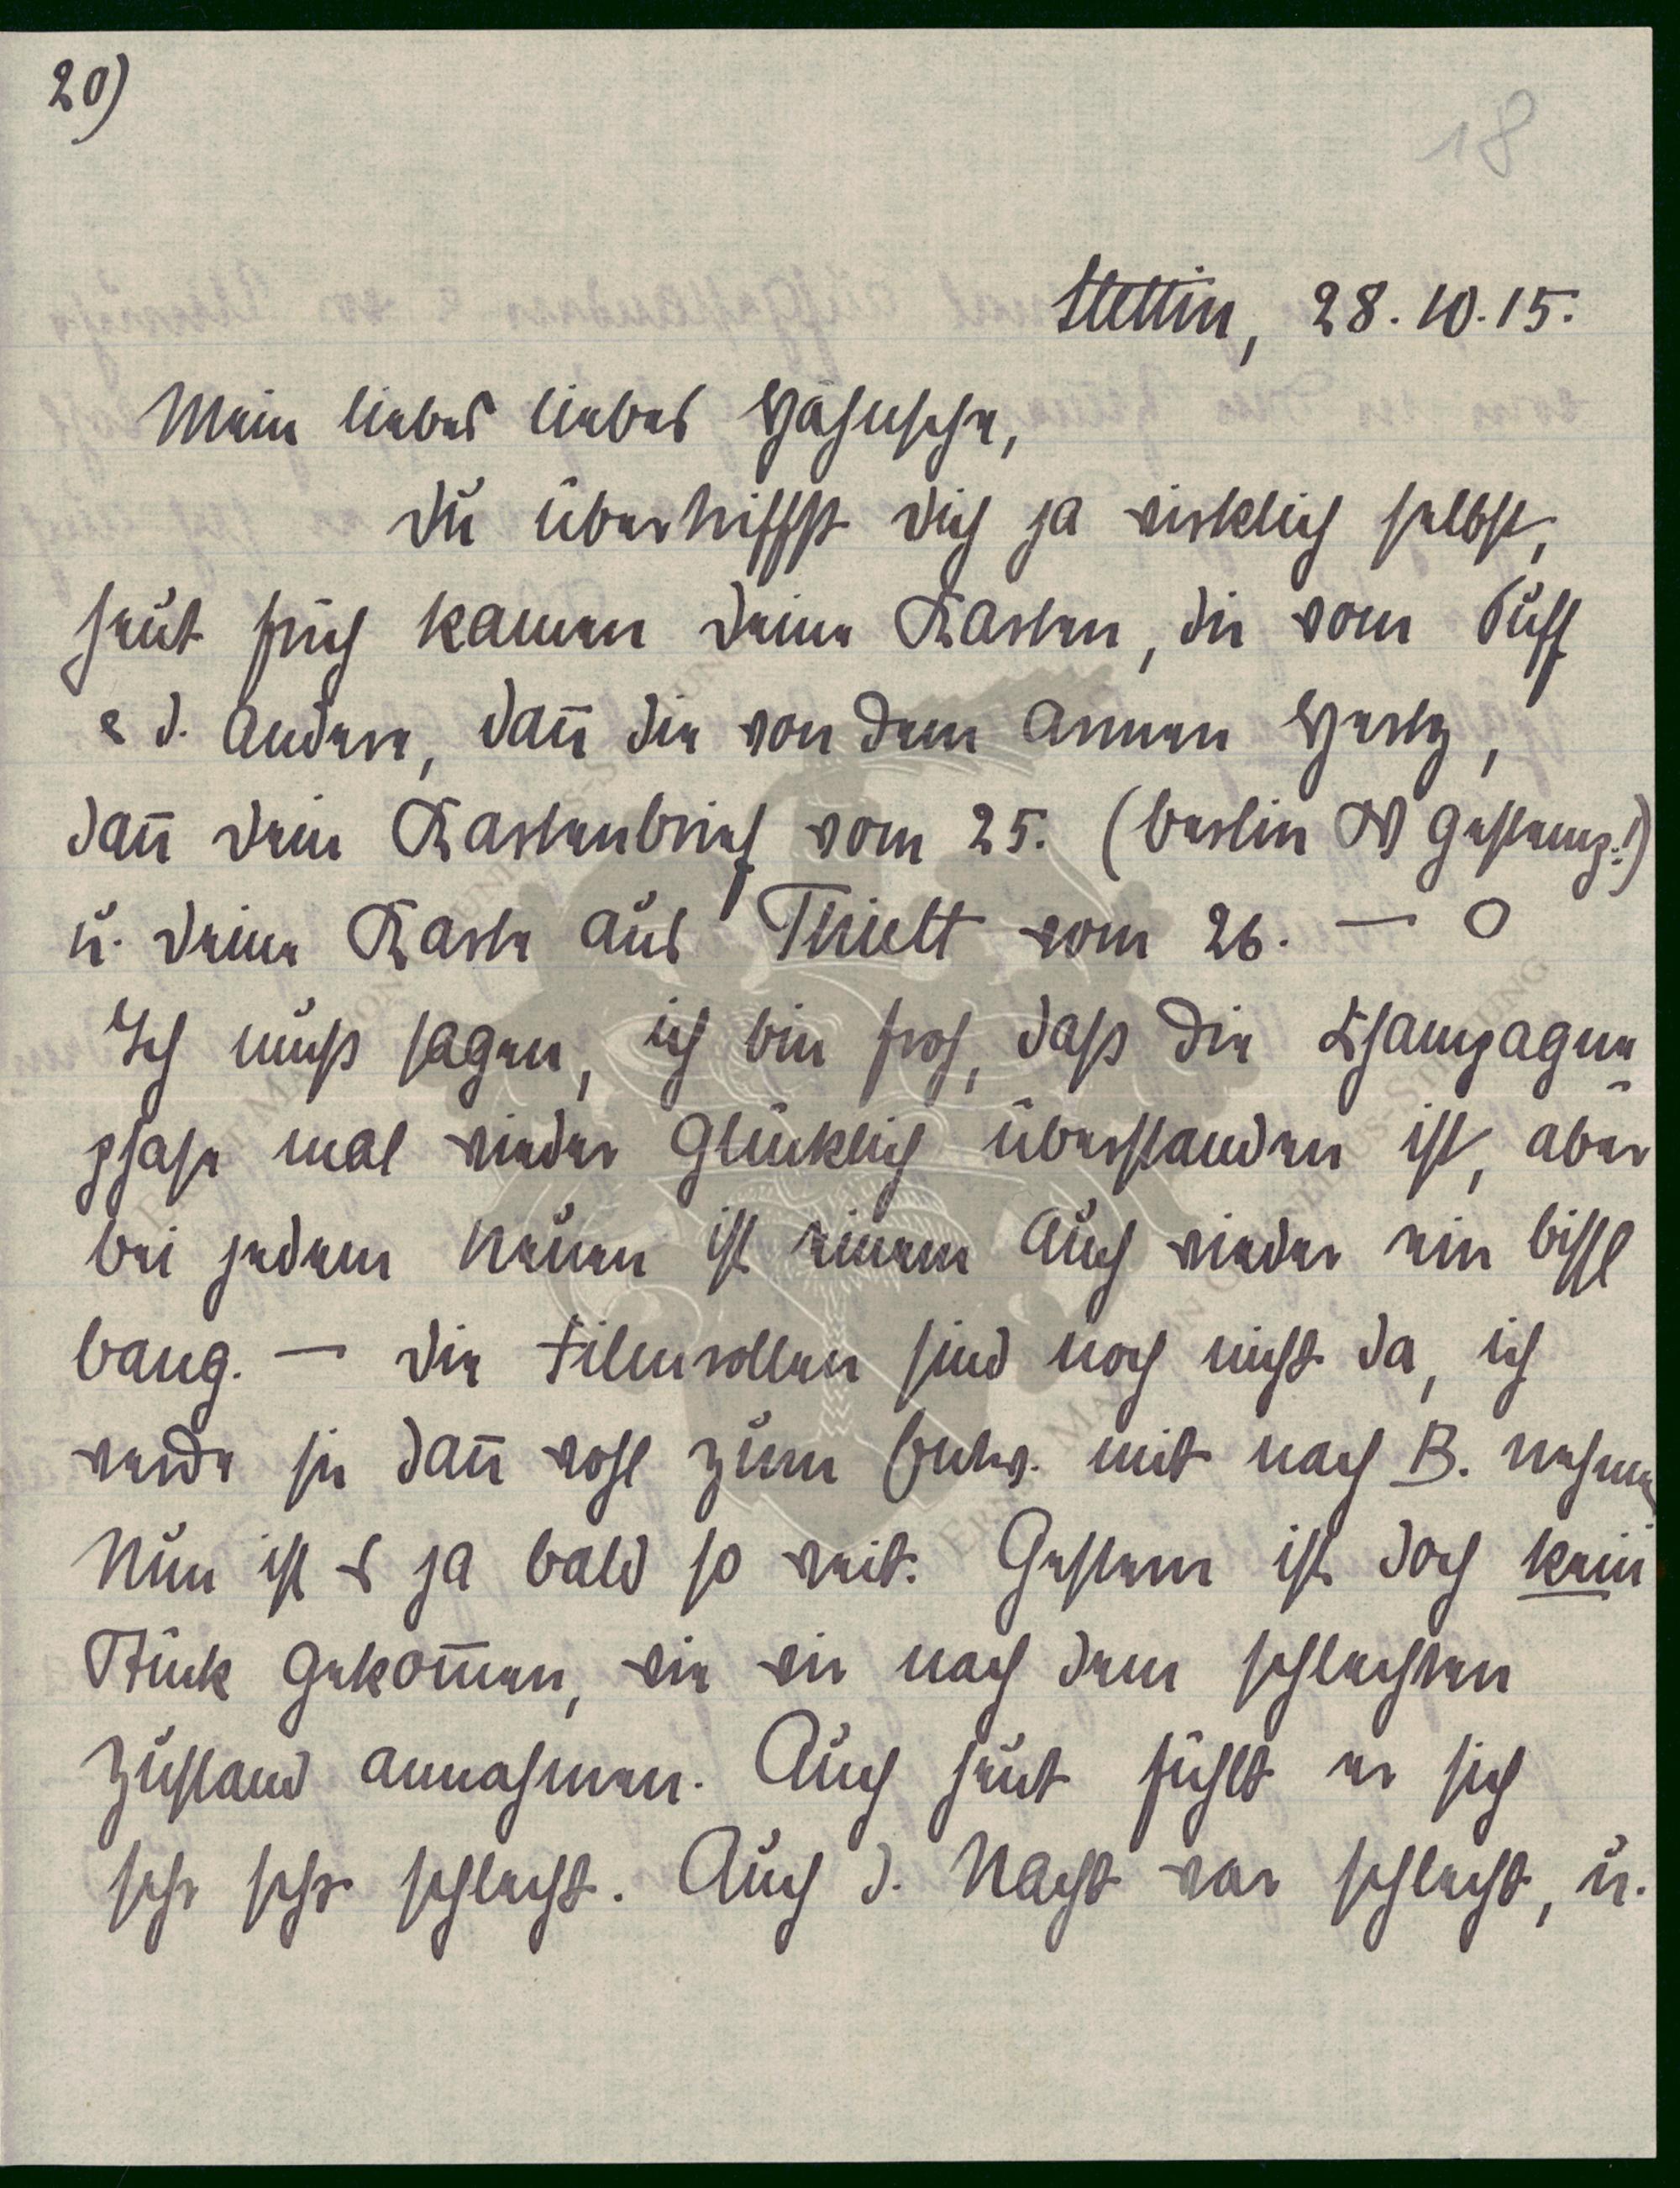 20)
18
Stettin, 28.10.15.
Mein liebes liebes Hähnsche,
Du übertriffst Dich ja wirklich selbst,
heut früh kamen Deine Karten, die vom Puff
& d. andere, dañ die von dem armen Hertz,
dañ Dein Kartenbrief vom 25. (Berlin W gestemp.!)
u. Deine Karte aus Thielt vom 26. — O
Ich muß sagen, ich bin froh, daß die Champagne
phase mal wieder glücklich überstanden ist, aber
bei jedem Neuen ist einem auch wieder ein bissl
bang. — Die Filmrollen sind noch nicht da, ich
werde sie dañ wohl zum Entw. mit nach B. nehmen
Nun ist es ja bald so weit. Gestern ist doch kein
Stück gekom̄en, wie wir nach dem schlechten
Zustand annahmen. Auch heut fühlt er sich
sehr sehr schlecht. Auch d. Nacht war schlecht, u.
ERNST MARTIN